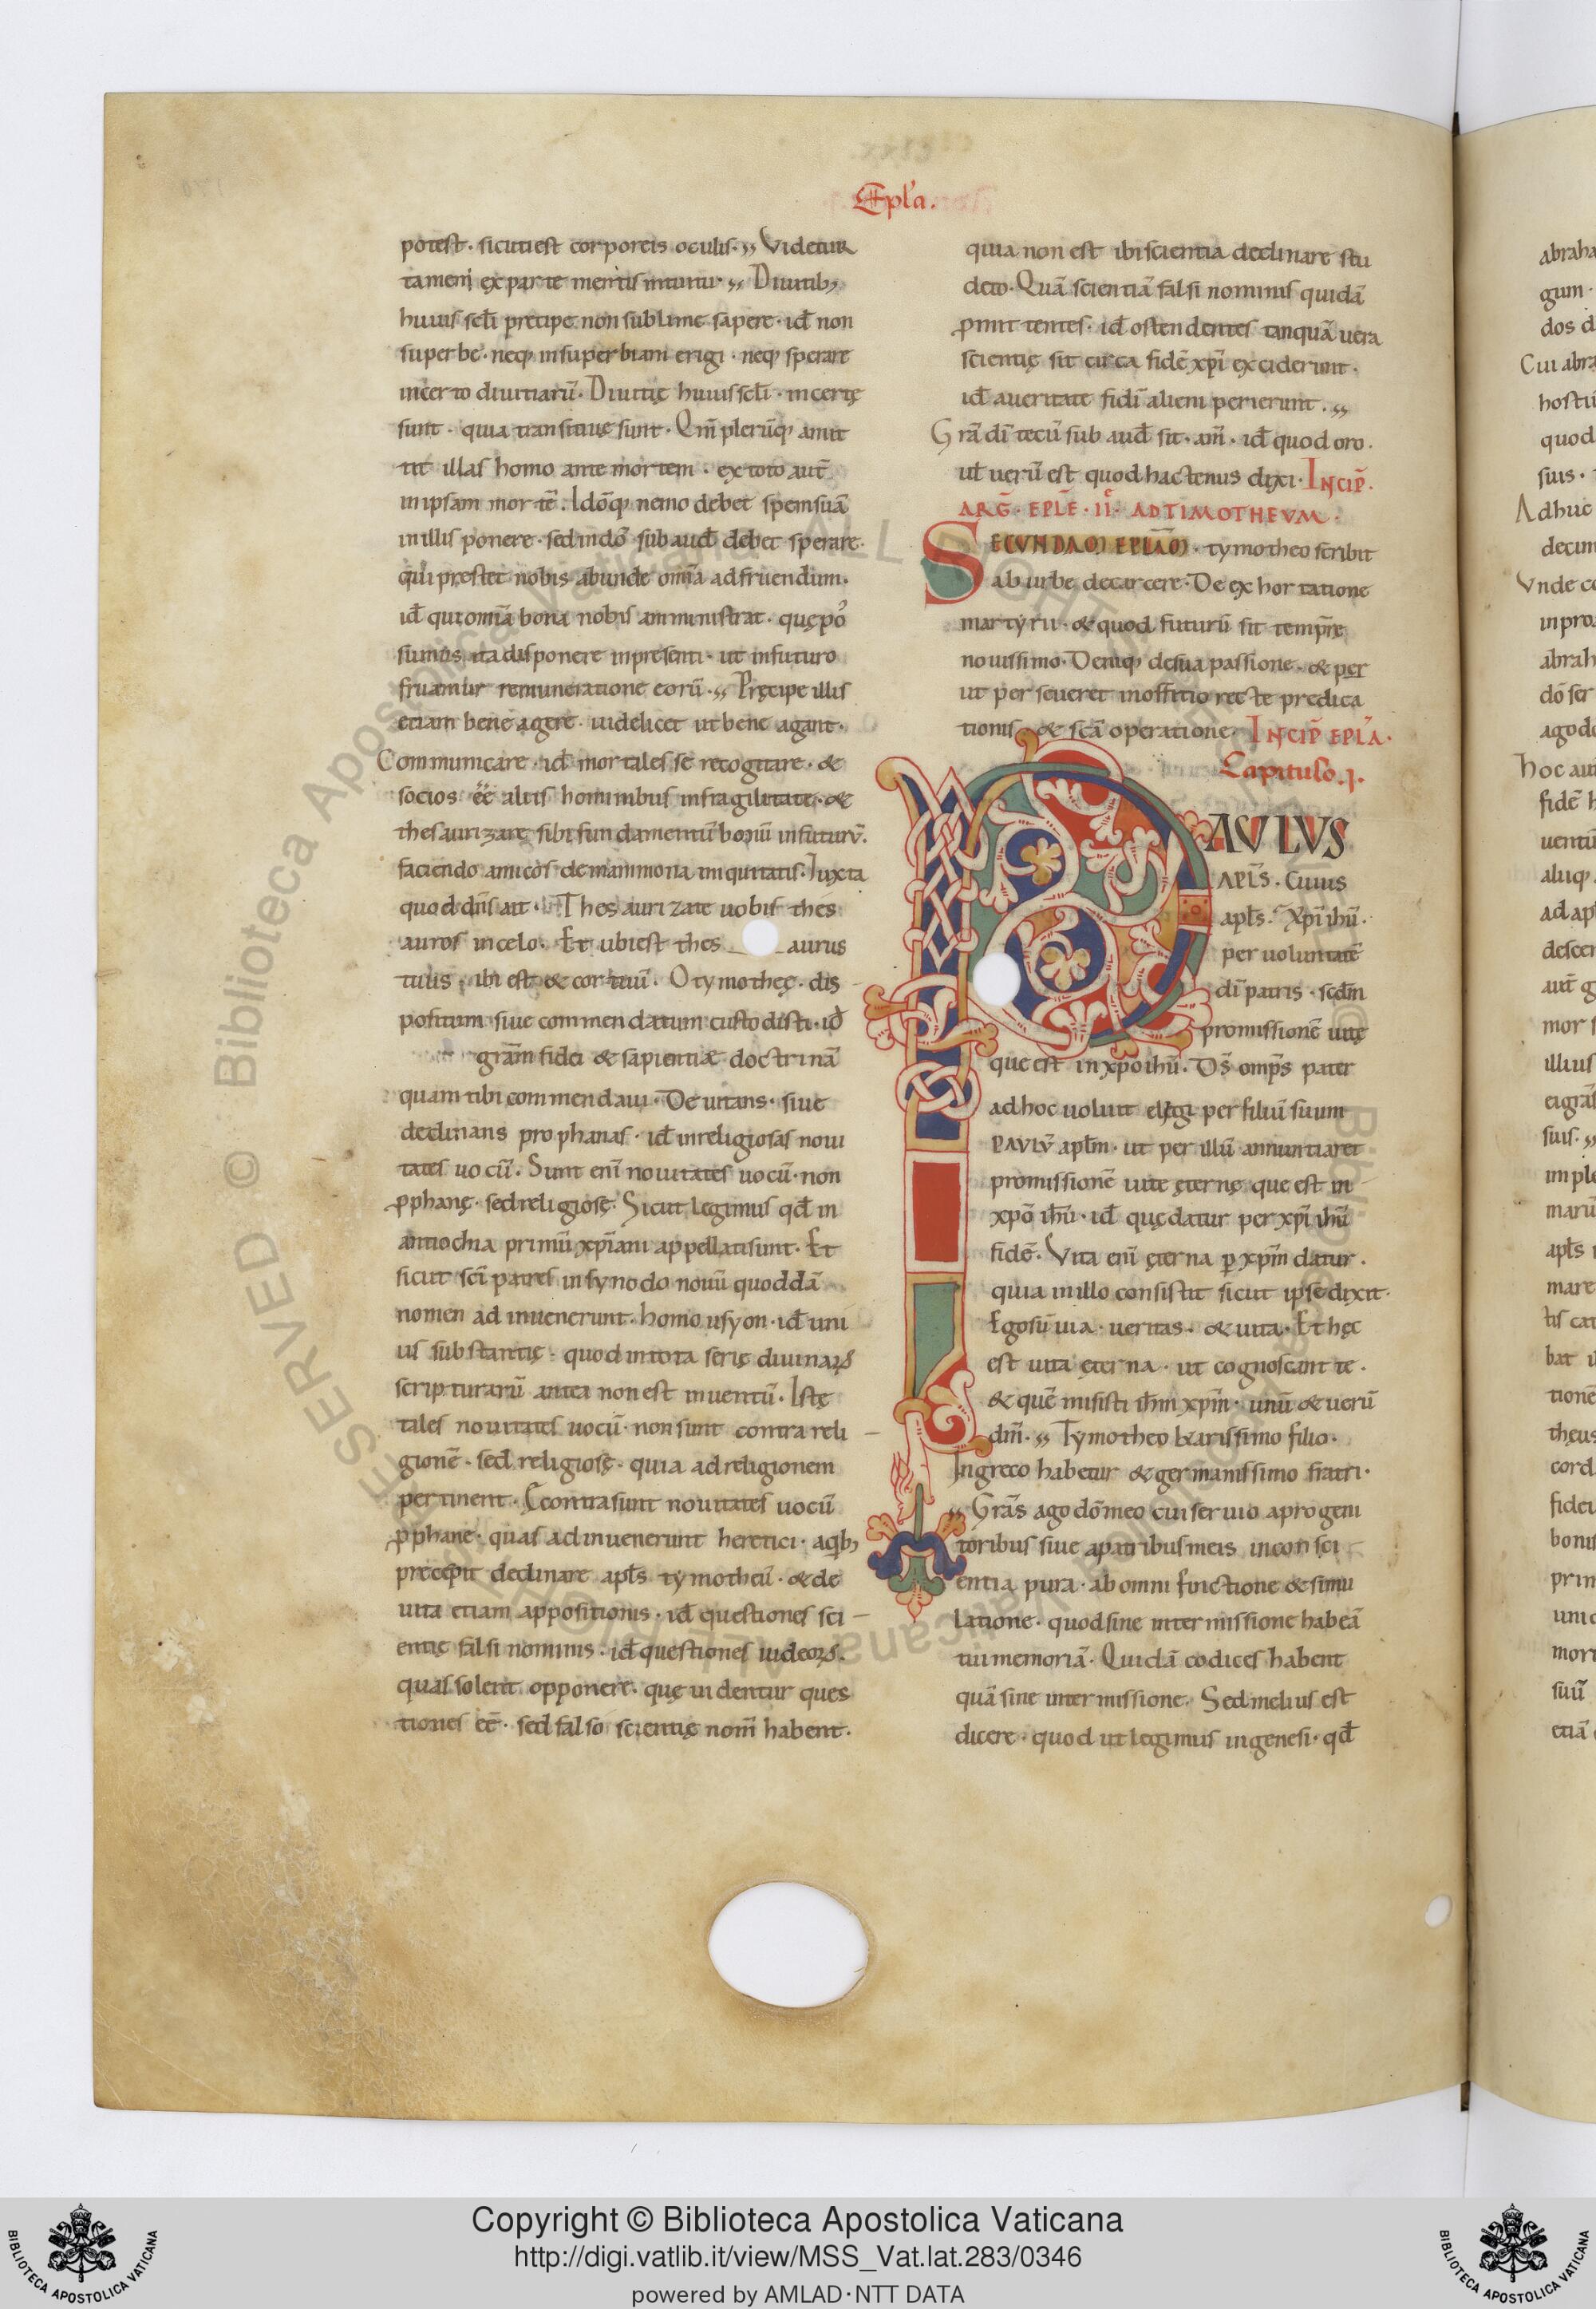 Epl'a.
potest · sicuti est corporeis oculis · Videtur
tamen ex parte mentis intuitu · Diuitib;
huius sc̄li precipe non sublime sapere · id̄ non
superbe · neq; in superbiam erigi · neq; sperare
incerto diuitiarū · Diuitię huius sc̄li · incertę
sunt · quia transitiuę sunt · Qm̄ plerūq; amit
tit illas homo ante mortem · ex toto aut̄
in ipsam mortē · Idōq; nemo debet spem suā
in illis ponere · sed in dō · sub aud̄ debet sperare ·
qui prestet nobis abunde om̄ia ad fruendum ·
id̄ qui om̄ia bona nobis amministrat · quę po
sumus ita disponere in presenti · ut in futuro
fruamur remuneratione eorū · Pręcipe illis
etiam bene agere · uidelicet ut bene agant ·
Communicare · id̄ mortales se recogitare · &
socios ēē aliis hominibus in fragilitate · &
thesaurizare sibi fundamentū bonū in futurū ·
faciendo amicos de mammona iniquitatis · Iuxta
quod dn̄s ait · Thesaurizate uobis thes
auros in celo · Et ubi est thes aurus
tuus · ibi est & cor tuū · O tymotheę · dis
positum siue commendatum custodisti · id̄
gram̄ fidei & sapientiæ doctrinā
quam tibi commendaui · Deuitans · siue
declinans prophanas · id̄ inreligiosas noui
tates uocū · Sunt enī nouitates uocū · non
pphanę · sed religiosę · Sicut legimus qd̄ in
antiochia primū xp̄iani appellati sunt · Et
sicut sc̄i patres in synodo nouū quoddā
nomen adinuenerunt · homousyon · id̄ uni
us substantię · quod in tota serie diuinarꝝ
scripturarū antea non est inuentū · Istę
tales nouitates uocū · non sunt contra reli
gionē · sed religiosę · quia ad religionem
pertinent · Econtra sunt nouitates uocū
pphane · quas adinuenerunt heretici · a qb;
precepit declinare apl̄s tymotheū · & de
uita etiam appositionis · id̄ questiones sci
entię falsi nominis · id̄ questiones iudeorꝝ ·
quas solent opponere · quę uidentur ques
tiones eē · sed falso scientię nom̄ habent ·
quia non est ibi scientia declinare stu
deto · Quā scientiā falsi nominis quidā
pmittentes · id̄ ostendentes tanquā uera
scientię sit circa fidē xp̄i exciderunt ·
id̄ a ueritate fidī alieni perierunt ·
Grā dī tecū sub aud̄ sit · am̄ · id̄ quod oro ·
ut uerū est quod hactenus dixi · Incip̄ ·
ARG̅ · EPLE̅ · II · AD TIMOTHEVM ·
SECVNDAM EPLAM · tymotheo scribit
ab urbe de carcere · De exhortatione
martyrii · & quod futurū sit tempre
nouissimo · Deniq; de sua passione · & per
ut perseueret in offitio recte predica
tionis · & sc̄a operatione · Incip̄ epl'a ·
Capitulo · I ·
PAULUS
APL̄S · Cuius
apl̄s · Xp̄i ih̄u ·
per uoluntatē
dī patris · scd̄m
promissionē uitę
que est in xp̄o ih̄u · Ds̄ omp̄s pater
ad hoc uoluit elegi per filiū suum
PAVLV̄ apl̄m · ut per illū annuntiaret
promissionē uite ęternę que est in
xp̄o ih̄u · id̄ quę datur per xp̄i ih̄u
fidē · Vita enī ęterna p xp̄m datur ·
quia in illo consistit sicut ipse dixit ·
Ego sū uia · ueritas · & uita · Et hęc
est uita ęterna · ut cognoscant te ·
& quē misisti ih̄m xp̄m · unū & uerū
dm̄ · Tymotheo karissimo filio ·
In greco habetur & germanissimo fratri ·
Grās ago dō meo cui seruio a progeni
toribus siue a patribus meis in consci
entia pura · ab omni fictione & simu
latione · quod sine intermissione habeā
tui memoriā · Quidā codices habent
quā sine intermissione · Sed melius est
dicere · quod ut legimus in genesi · qd̄
abraha
gum ·
dos d
Cui abra
hostiā
quod
sius ·
Adhuc
decim
Vnde co
in pro
abrah
dō ser
ago dō
hoc aut
fidē h
uentū
aliq;
ad ap
descen
aut̄ g
mor s
illius
ei grās
suis ·
imple
marū
apl̄s
mare
tis cat
bat
tionē
theus
cord
fidei
bonis
prim
unic
mort
suū
etiā
Copyright © Biblioteca Apostolica Vaticana
http://digi.vatlib.it/view/MSS_Vat.lat.283/0346
powered by AMLAD·NTT DATA
BIBLIOTECA APOSTOLICA VATICANA
BIBLIOTECA APOSTOLICA VATICANA